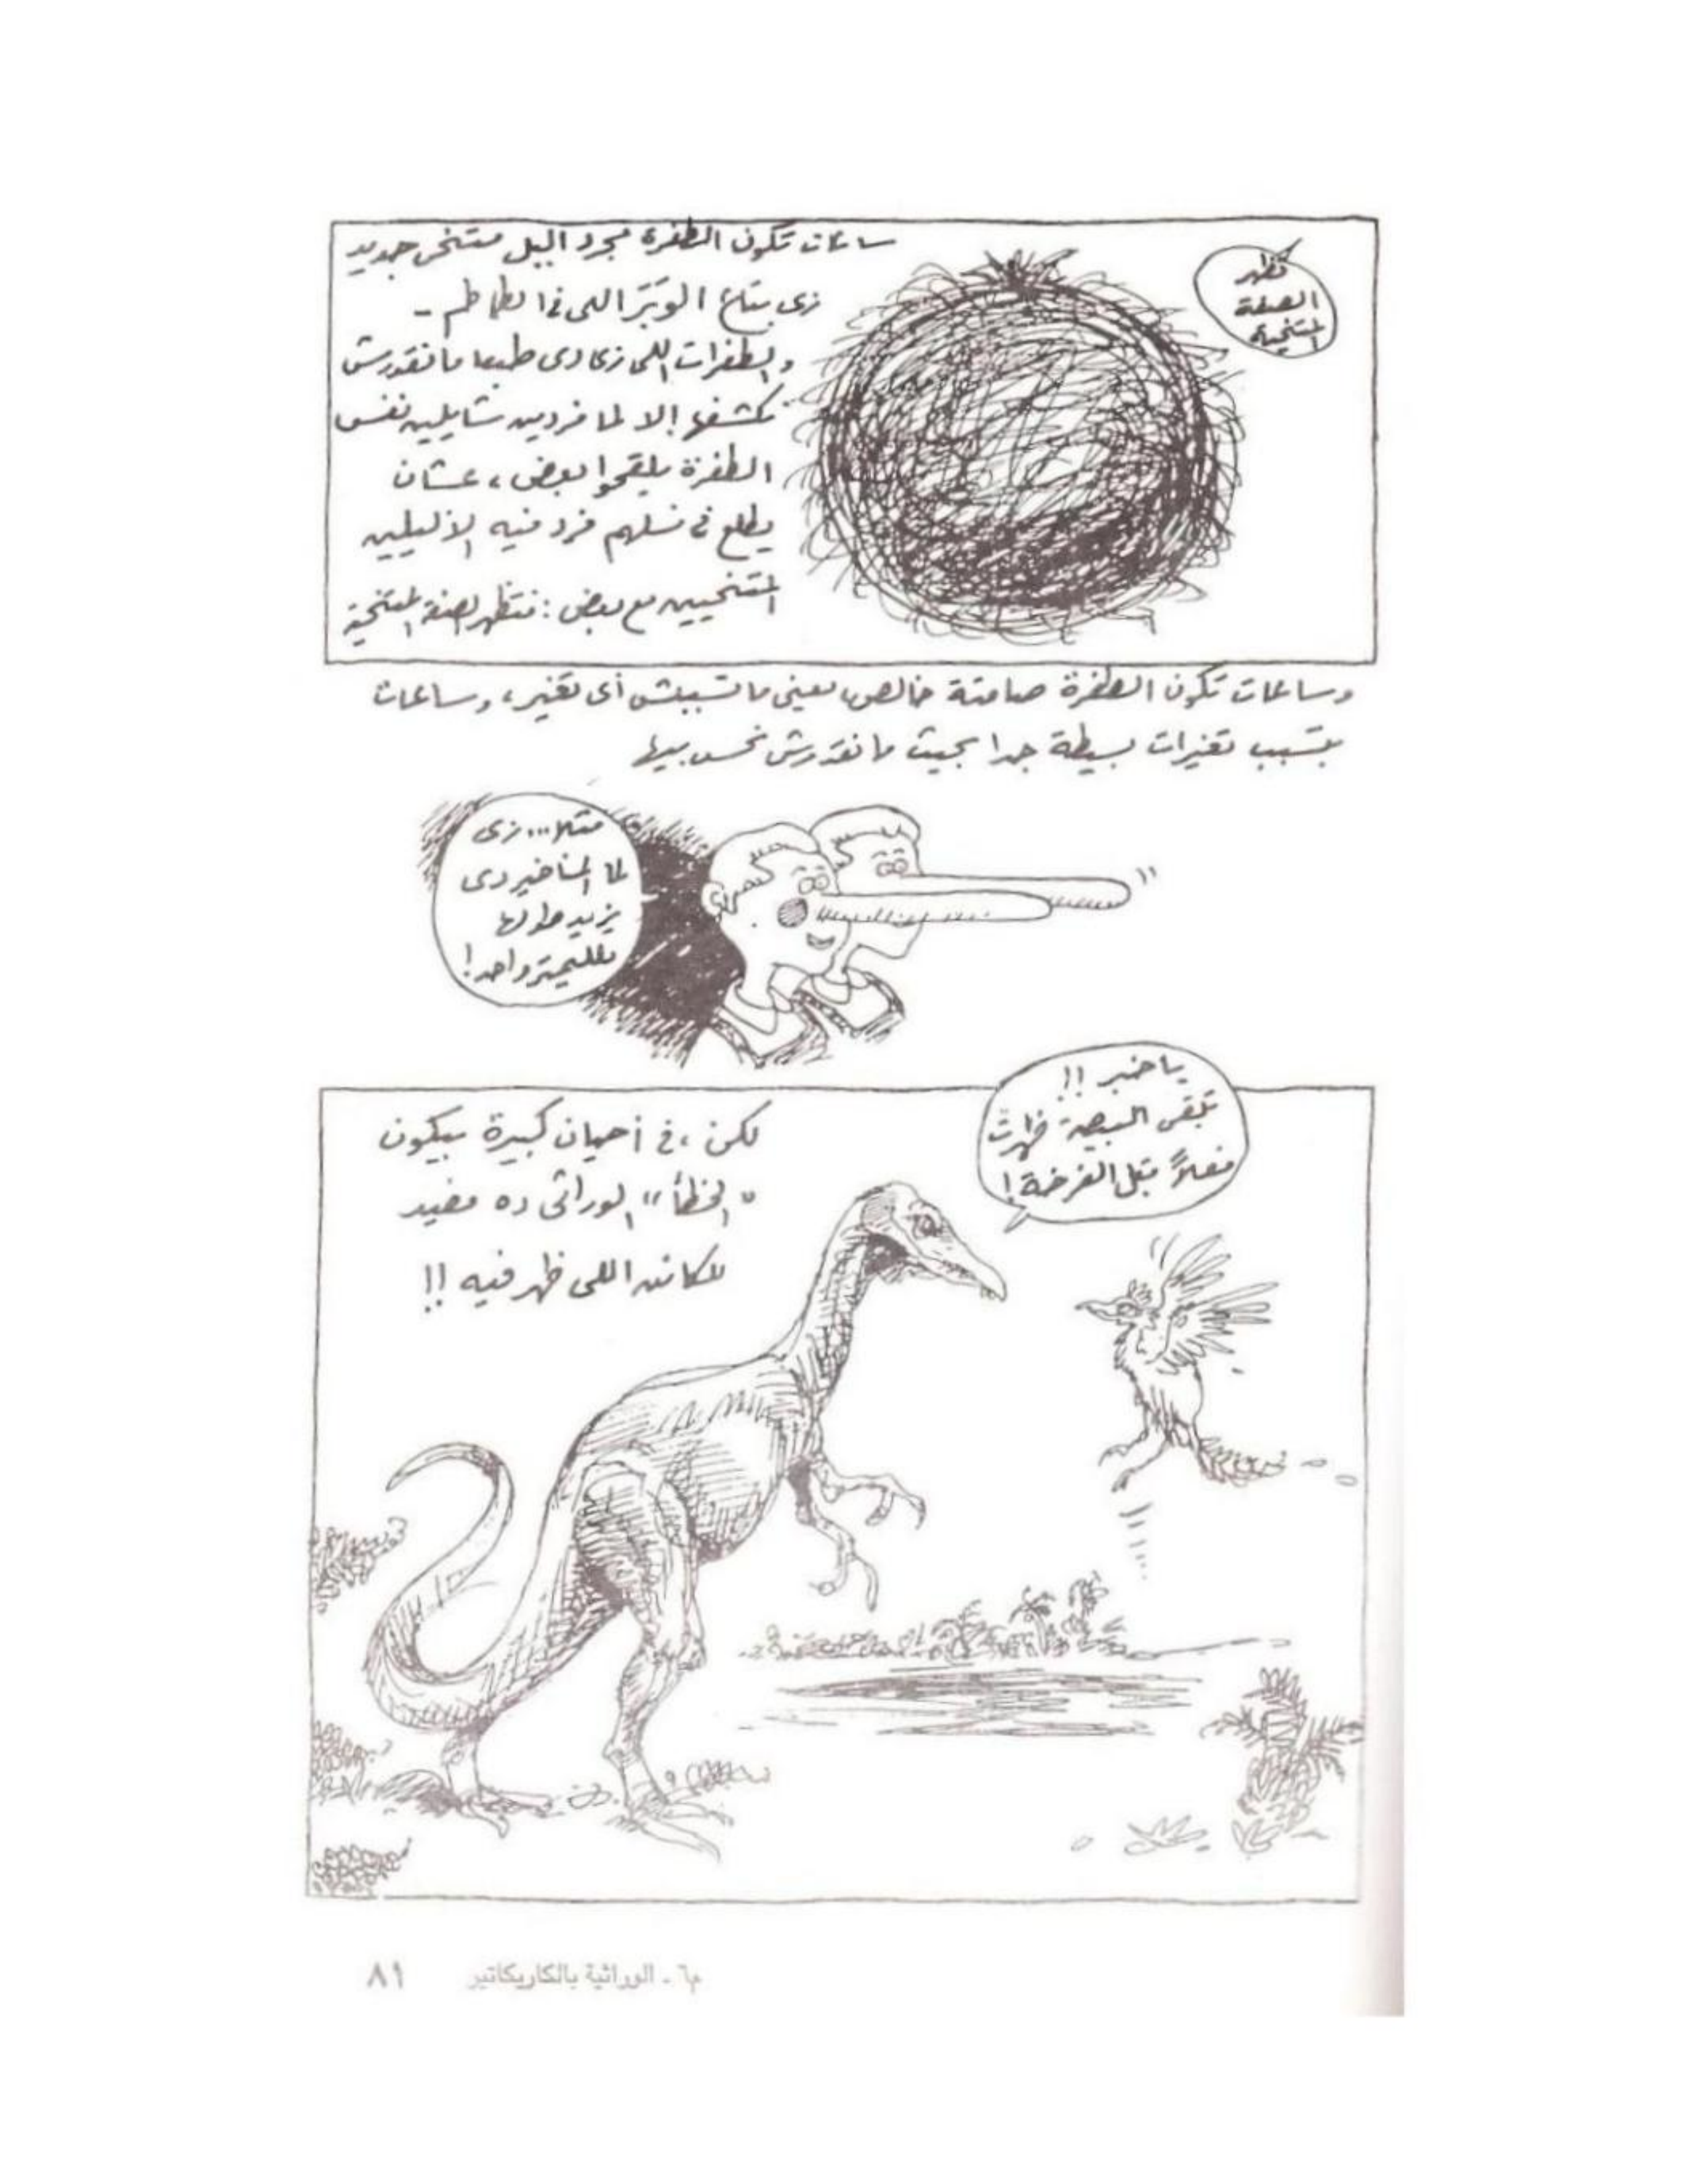 ساعات تكون الطفرة مجرد أليل متنحى جديد
زى بتاع الوَبَر اللى فى الطماطم -
والطفرات اللى زى دى طبعا ما نقدرش
نكشفها إلا لما فردين شايلين نفس
الطفرة يلقحوا بعض، عشان
يطلع فى نسلهم فرد فيه الأليلين
المتنحيين مع بعض: فتظهر الصفة المتنحية
تظهر
الصفة
المتنحية
وساعات تكون الطفرة صامتة خالص يعنى ما تسببش أى تغير، وساعات
بتسبب تغيرات بسيطة جدا بحيث ما نقدرش نحس بيها
مثلا... زى
لما المناخير دى
يزيد طولها
ملليمتر واحد!
يا خبر !!
تبقى البيضة ظهرت
فعلاً قبل الفرخة!
لكن، فى أحيان كبيرة بيكون
"الخطأ" الوراثى ده مفيد
للكائن اللى ظهر فيه !!
م٦ ـ الوراثية بالكاريكاتير ٨١